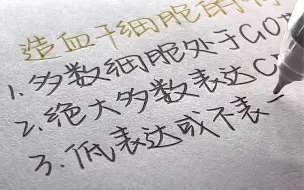 造血干细胞的特
1.多数细胞处于G0
2.绝大多数表达C
3.低表达或不表